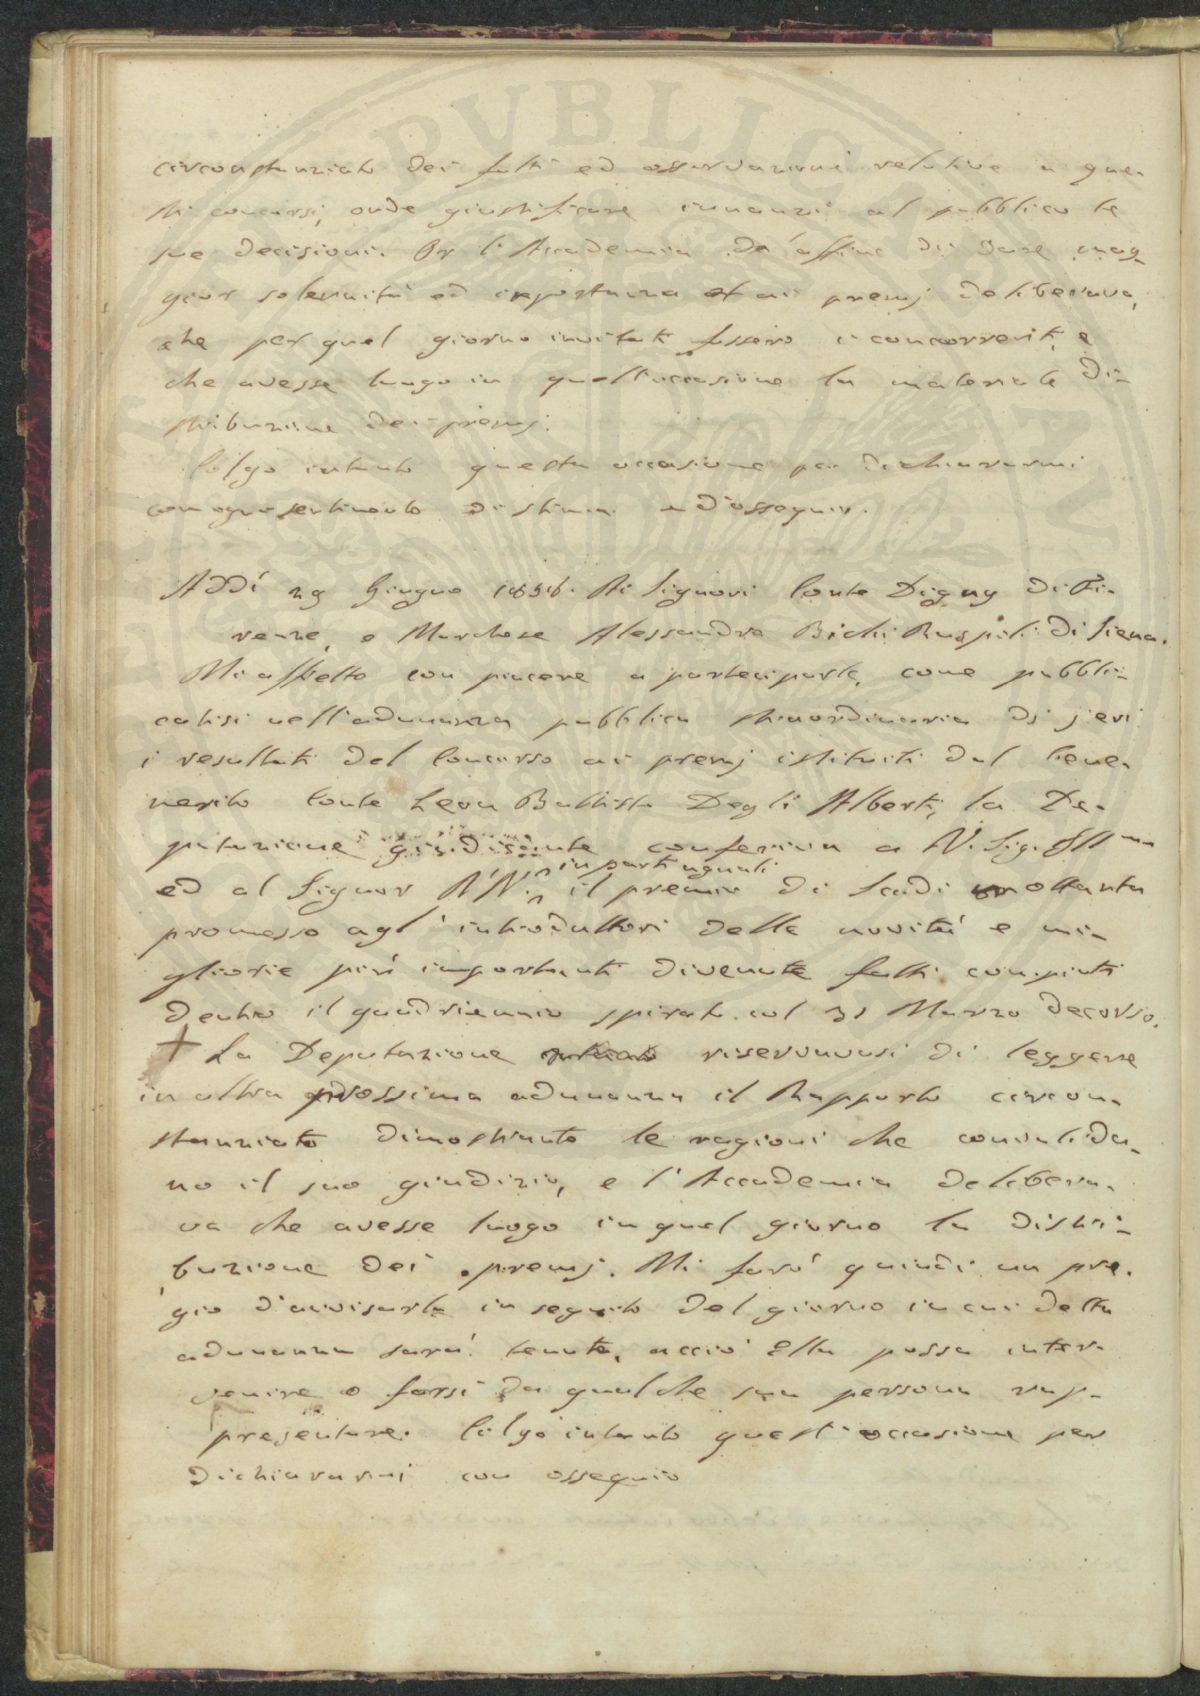 circonstanziato dei fatti ed osservazioni relative a que-
sti concorsi, onde giustificare innanzi al pubblico le
sue decisioni. Or l'Accademia affine di dare mag-
gior solennità ed importanza ai premj deliberava,
che per quel giorno invitati fossero i concorrenti, e
che avesse luogo in quell'occasione la materiale di-
stribuzione dei premj.
Colgo intanto questa occasione per dichiararmi
con ogni sentimento di stima ed ossequio.
Addì 29 Giugno 1856. Ai Signori Conte Digny di Fi-
renze, e Marchese Alessandro Bichi Ruspoli di Siena.
Mi affretto con piacere a parteciparle, come pubbli-
catisi nell'adunanza pubblica straordinaria di jeri
i resultati del Concorso ai premj istituiti dal bene-
merito Conte Leon Battista Degli Alberti, la De-
putazione giudicante conferiva a V. Sig. Ill.ma
in parti uguali
ed al Signor N.N. il premio di Scudi ottanta
promesso agl'introduttori delle novità e mi-
gliorie più importanti divenute fatti compiuti
dentro il quadriennio spirato col 31 Marzo decorso.
+ La Deputazione riservavasi di leggere
in altra prossima adunanza il Rapporto circon-
stanziato dimostrante le ragioni che convalida-
no il suo giudizio, e l'Accademia delibera-
va che avesse luogo in quel giorno la distri-
buzione dei premj. Mi farò quindi un pre-
gio d'avvisarla in seguito del giorno in cui detta
adunanza sarà tenuta, acciò Ella possa inter-
venire o farsi da qualche sua persona rap-
presentare. Colgo intanto quest'occasione per
dichiararmi con ossequio
PVBLIC